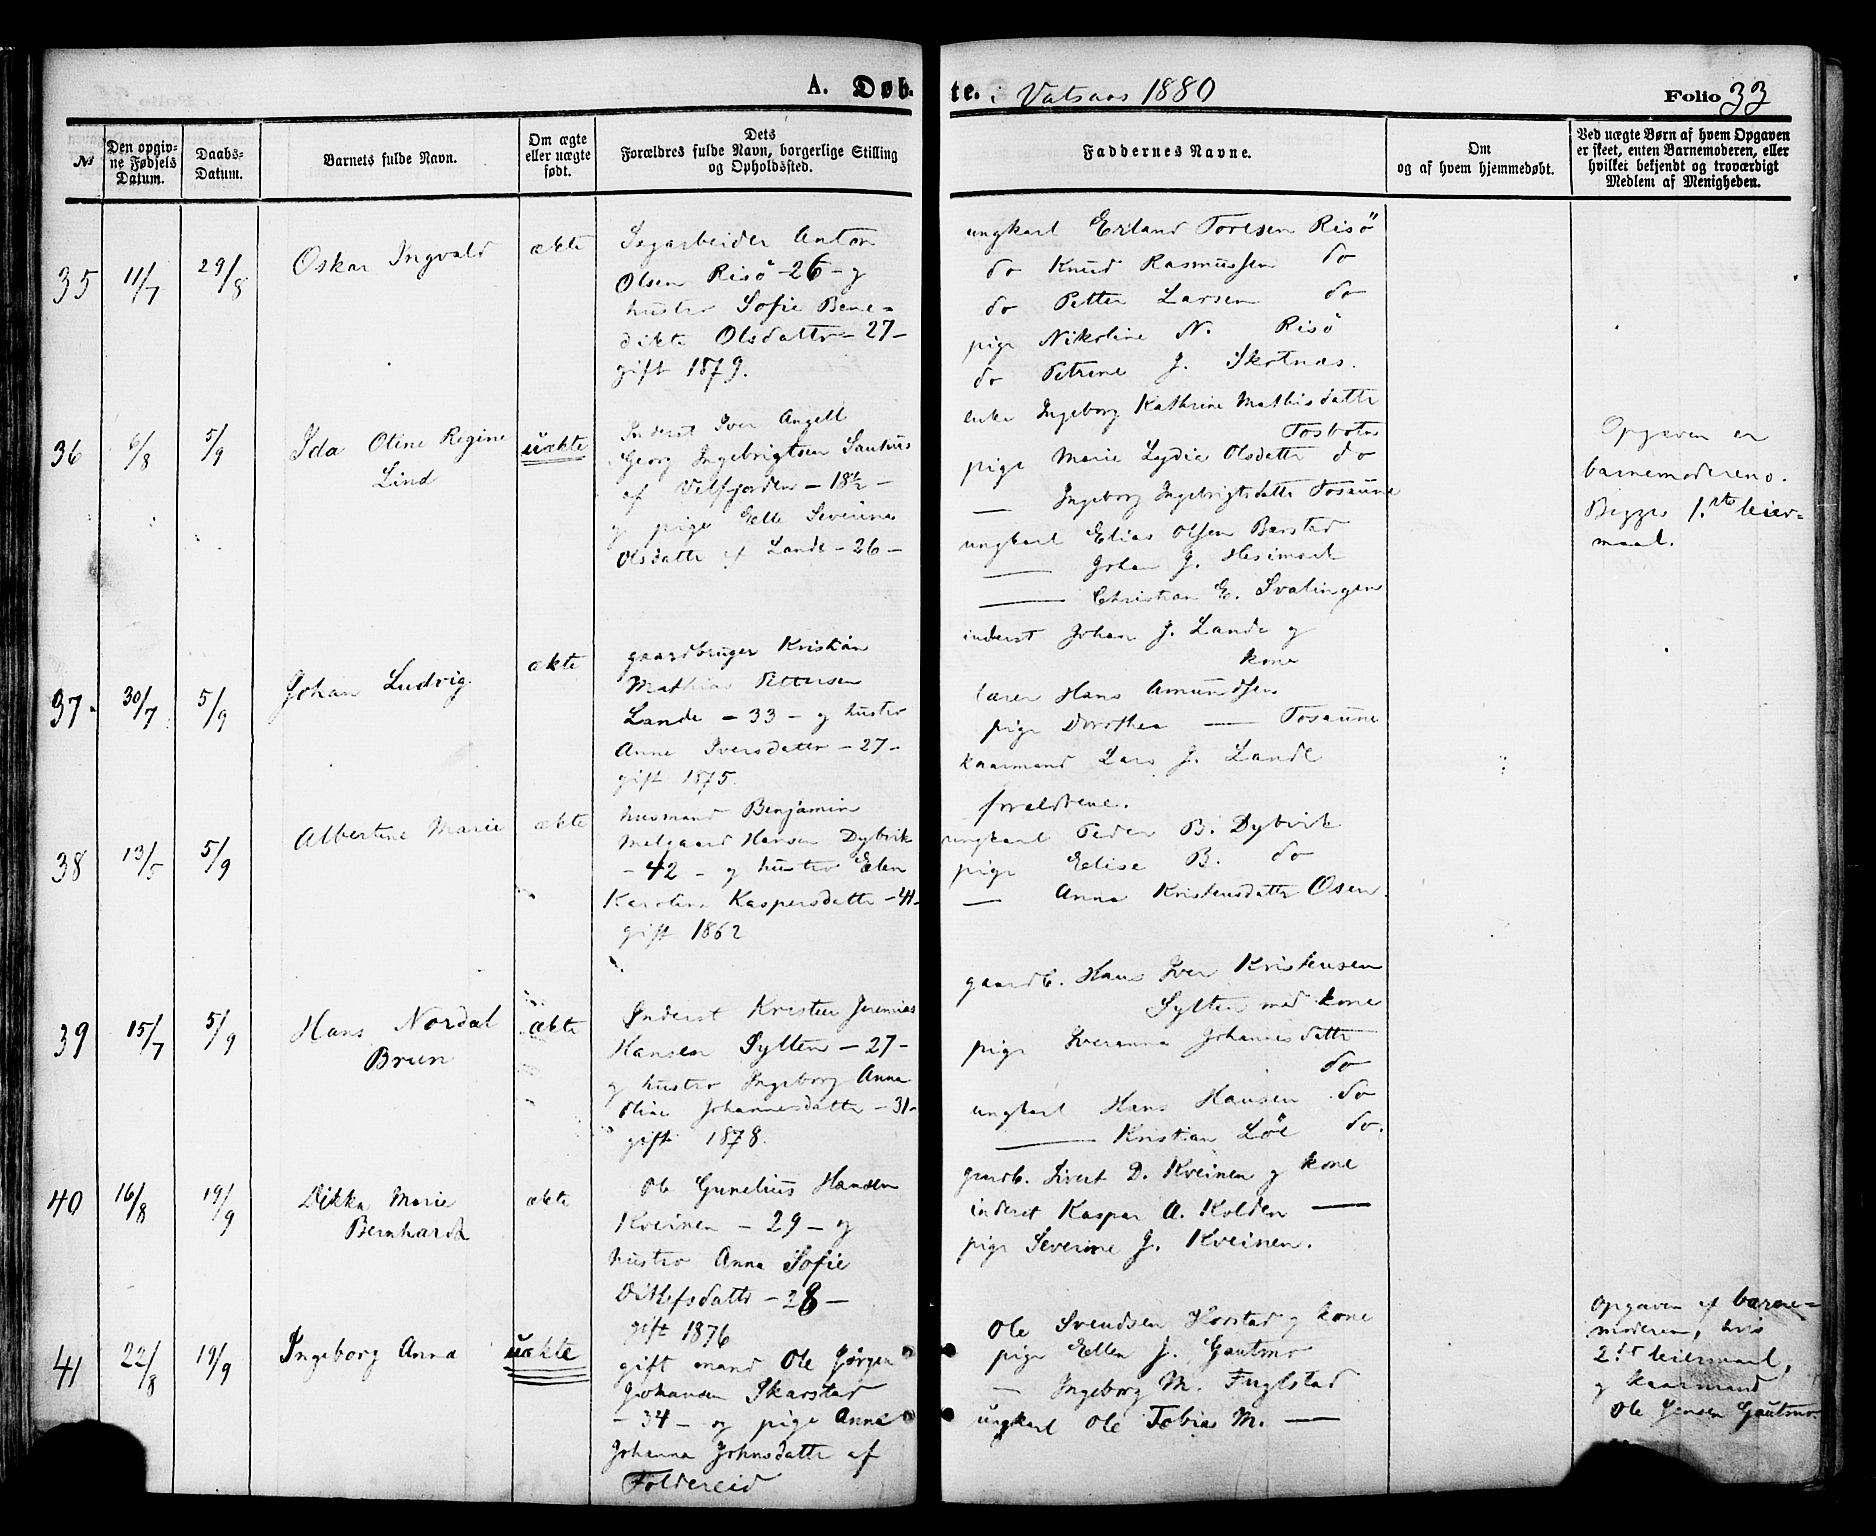 A. Døb-
te. i Vatsaas 1880
Folio 33
No
Den opgiv-
ne Fødsels
Datum.
Daabs-
Datum.
Barnets fulde Navn.
Om ægte
eller uægte
født.
Dets
Forældres fulde Navn, borgerlige Stilling
og Opholdssted.
Faddernes Navne.
Om
og af hvem hjemmedøbt.
Ved uægte Børn af hvem Opgaven
er skeet, enten Barnemoderen, eller
hvilket bekjendt og troværdigt
Medlem af Menigheden.
35
11/7
29/8
Oskar Ingvald
ækte
Sagarbeider Anton
Olsen Risö - 26 - og
hustro Sofie Bene-
dikte Olsdattr - 27 -
gift 1879.
ungkarl Erland Toresen Risö
do Knud Rasmussen do
do Petter Larsen do
pige Nikoline N. Risö
do Petrine J. Skotnæs.
36
6/8
5/9
Ida Oline Regine
Lind
uækte
Inderst Iver Angell
Georg Ingebrigtsen
af Velfjorden - 18½ -
og pige Elle Severine
Olsdattr af Lande - 26 -
enke Ingeborg Kathrine Mathisdattr
Tosbotn
pige Marie Lydia Olsdattr do
— Ingeborg Ingebrigtsdattr Tosaune
ungkarl Elias Olsen Barstad
— Johan J. Heimark
— Christian E. Svalingen
inderst Johan J. Lande og
kone
Opgaven er
barnemoderens.
Begges 1.ste leier-
maal.
37.
30/7
5/9
Johan Ludvig
ækte
gaardbruger Kristian
Mathias Pettersen
Lande - 33 - og hustro
Anne Iversdattr - 27 -
gift 1875.
lærer Hans Amundsen
pige Dorothea — Tosaune
kaarmand Lars J. Lande
forældrene.
38
13/5
5/9
Albertine Marie
ækte
husmand Benjamin
Melgaard Hansen Dybvik
- 42 - og hustro Elen
Karoline Kaspersdattr - 41 -
gift 1862
ungkarl Peder B. Dybvik
pige Elise B. do
— Anna Kristensdattr Osen.
39
15/7
5/9
Hans Nordal
Brun
ækte
Inderst Kristen Jeremias
Hansen Sylten - 27 -
og hustro Ingeborg Anna
Oline Johannesdattr - 31 -
gift 1878.
gaardb. Hans Iver Kristensen
Sylten med kone
pige Iveranna Johannesdattr
do
ungkarl Hans Hansen do
— Kristian Löe do.
40
16/8
19/9
Dikka Marie
Bernharda
ækte
Ole Gunelius Hansen
Kveinen - 29 - og
hustro Anna Sofie
Ditlefsdattr - 28 -
gift 1876
gaardb. Sivert D. Kveinen og kone
inderst Kaspar A. Kolden —
pige Severine J. Kveinen.
41
22/8
19/9
Ingeborg Anna
uækte
gift mand Ole Jörgen
Johansen Skarstad
- 34 - og pige Anne
Johanna Johnsdattr af
Foldereid
Ole Svendsen Horstad og kone
pige Ellen J. Gautmo
— Ingeborg M. Fuglstad
ungkarl Ole Tobias M. —
Opgaven af barne-
moderen, hvis
2.det leiermaal,
og kaarmand
Ole Jensen Gautmo